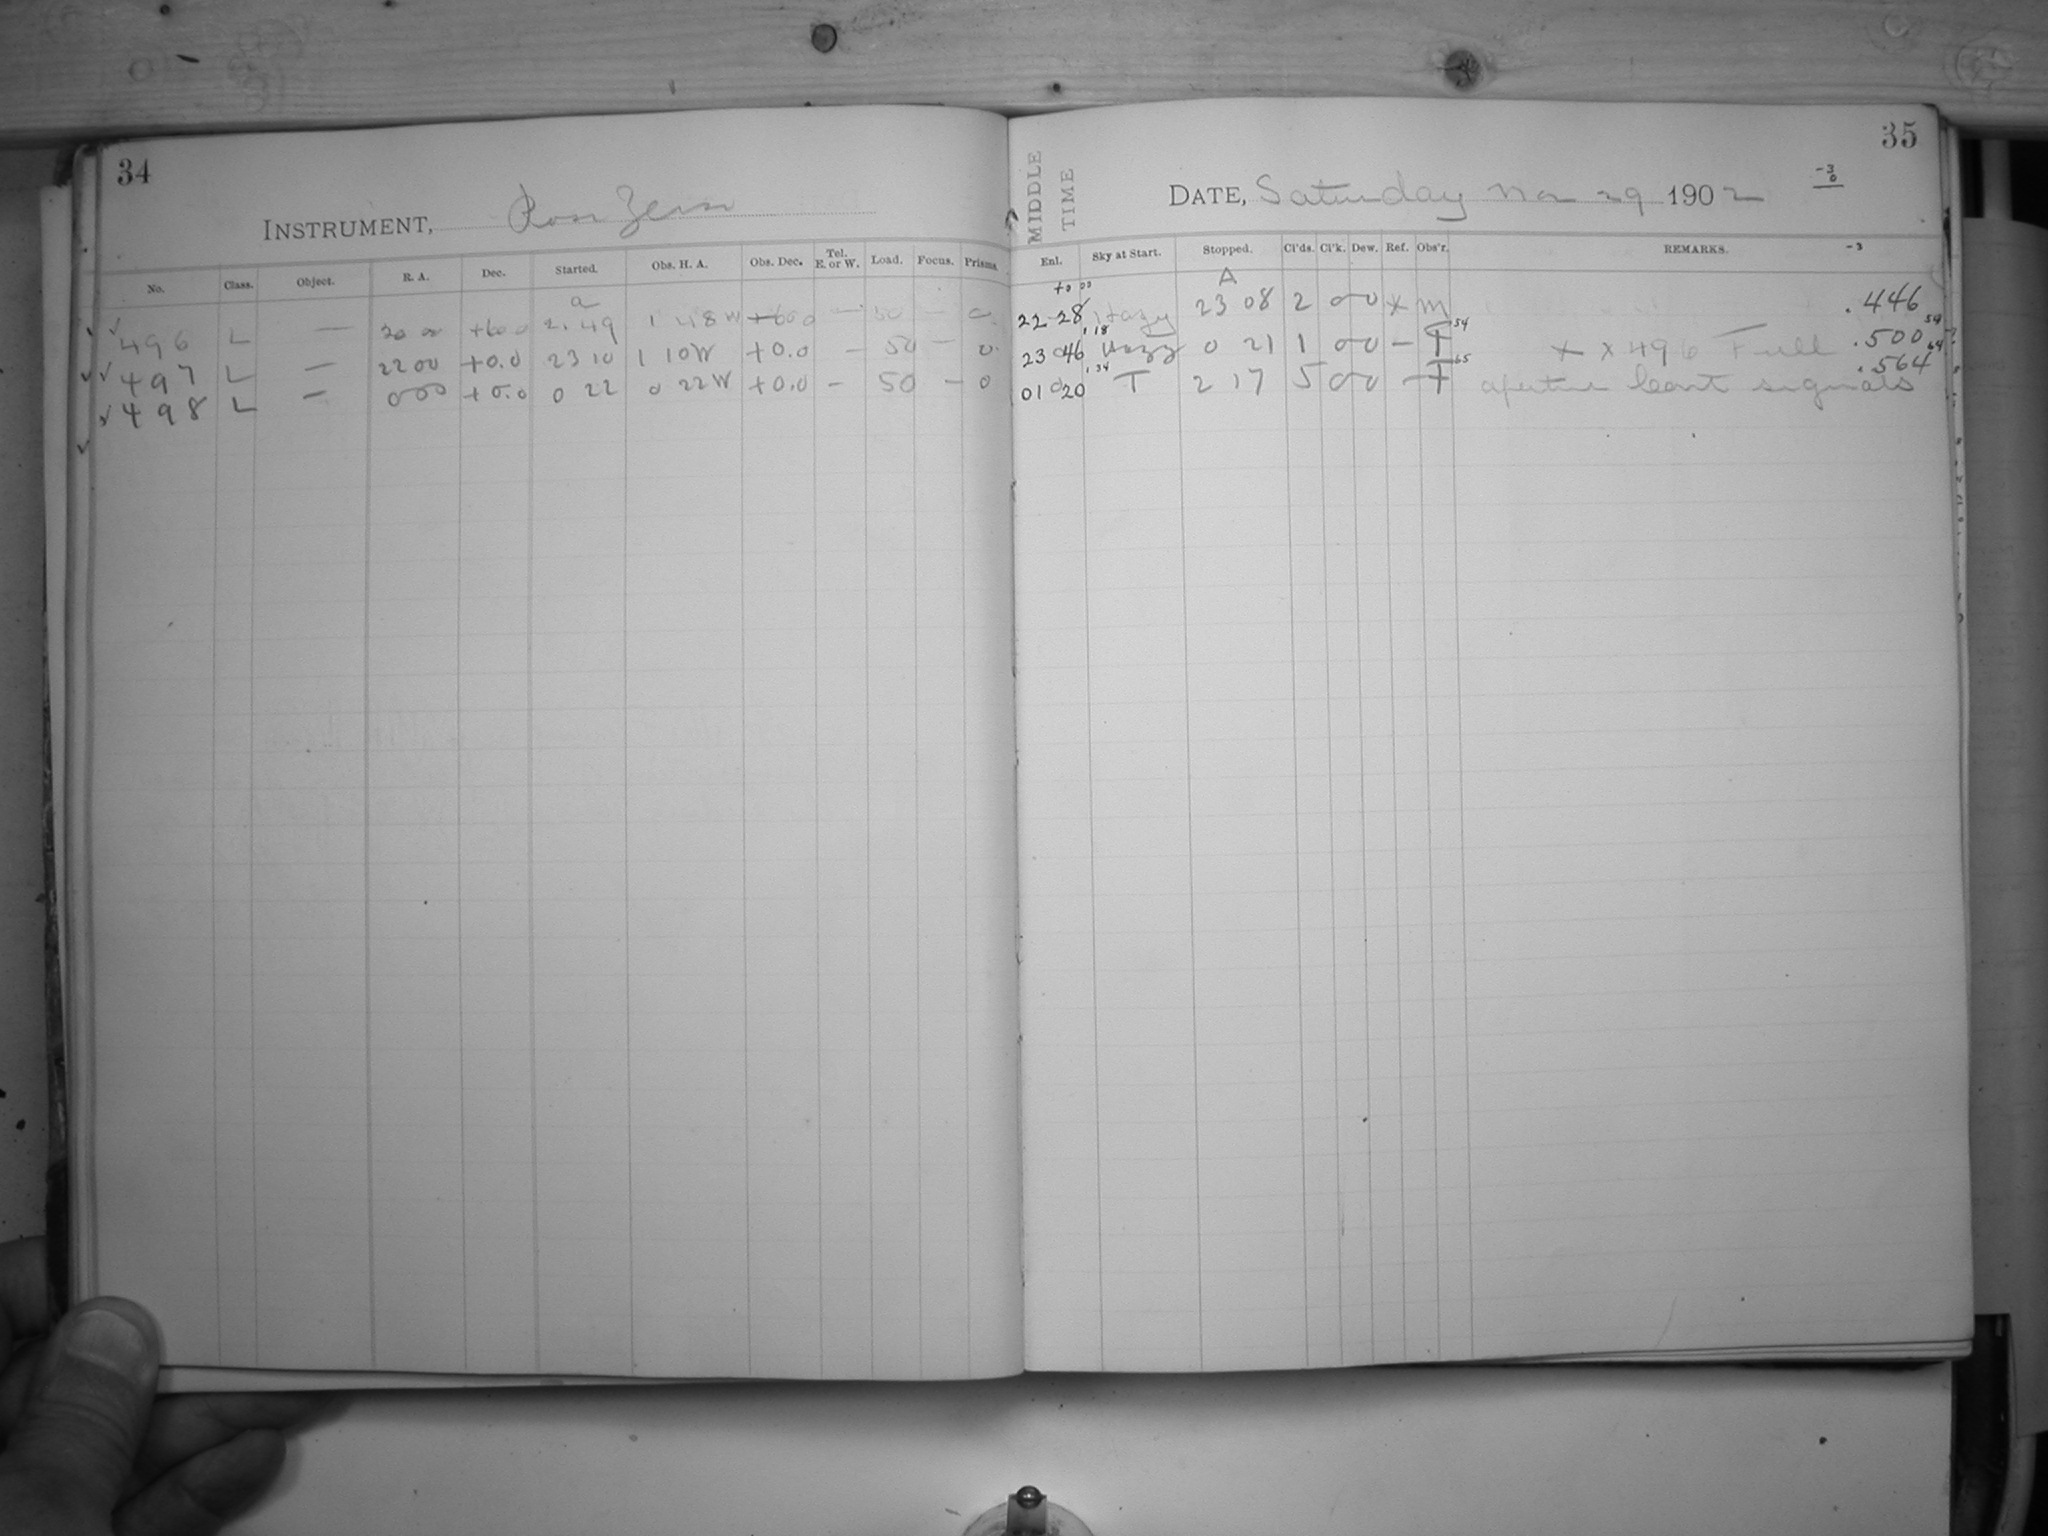 34
INSTRUMENT, Ross Zeiss
No. Class. Object. R. A. Dec. Started. Obs. H. A. Obs. Dec. Tel. E. or W. Load. Focus. Prisms.
a
✓ 496 L — 20 00 +60.0 2. 49 1 48 W +60 0 — 50 — 0
✓ 497 L — 22 00 +0.0 23 10 1 10 W +0.0 — 50 — 0
✓ 498 L — 0 00 +0.0 0 22 0 22 W +0.0 — 50 — 0
35
MIDDLE TIME
DATE, Saturday Nov 29 1902
-3
0
Enl. Sky at Start. Stopped. Cl'ds. Cl'k. Dew. Ref. Obs'r. REMARKS. -3
to 00 A
22 28 Hazy 23 08 2 0 0 x M .446
1 18 54 54
23 46 Hazy 0 21 1 0 0 — T x x 496 Full .500
1 34 65 64
01 20 T 2 17 5 0 0 — T aperture .564